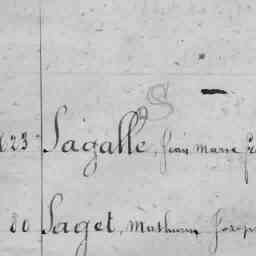 S
23 Sagallé, Jean Marie
80 Saget, Mathurin Joseph